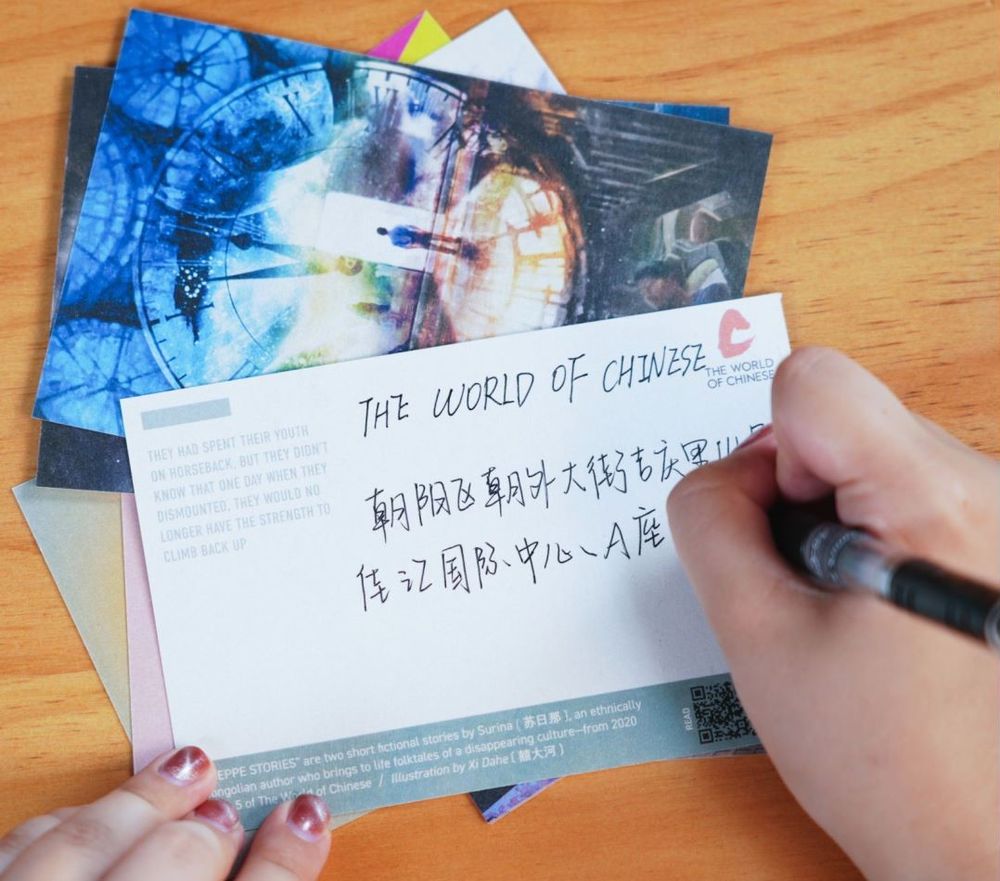 THE WORLD OF CHINESE
THE WORLD
OF CHINESE
THEY HAD SPENT THEIR YOUTH
ON HORSEBACK, BUT THEY DIDN'T
KNOW THAT ONE DAY WHEN THEY
DISMOUNTED, THEY WOULD NO
LONGER HAVE THE STRENGTH TO
CLIMB BACK UP
朝阳区朝外大街吉庆里
佳汇国际中心、A座
READ
EPPE STORIES" are two short fictional stories by Surina [苏日那], an ethnically
ongolian author who brings to life folktales of a disappearing culture—from 2020
5 of The World of Chinese / Illustration by Xi Dahe [囍大河]